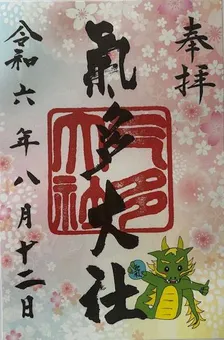 奉拝
氣多大社
氣多大社
令和六年八月十二日